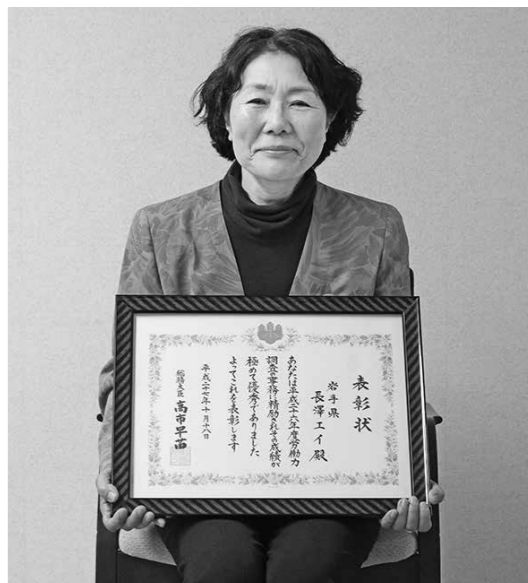 表彰状
岩手県
長澤エイ殿
あなたは平成二十六年度労働力
調査の事務に精励されその成績が
極めて優秀でありました
よってこれを表彰します
平成二十七年十月十八日
総務大臣 高市早苗